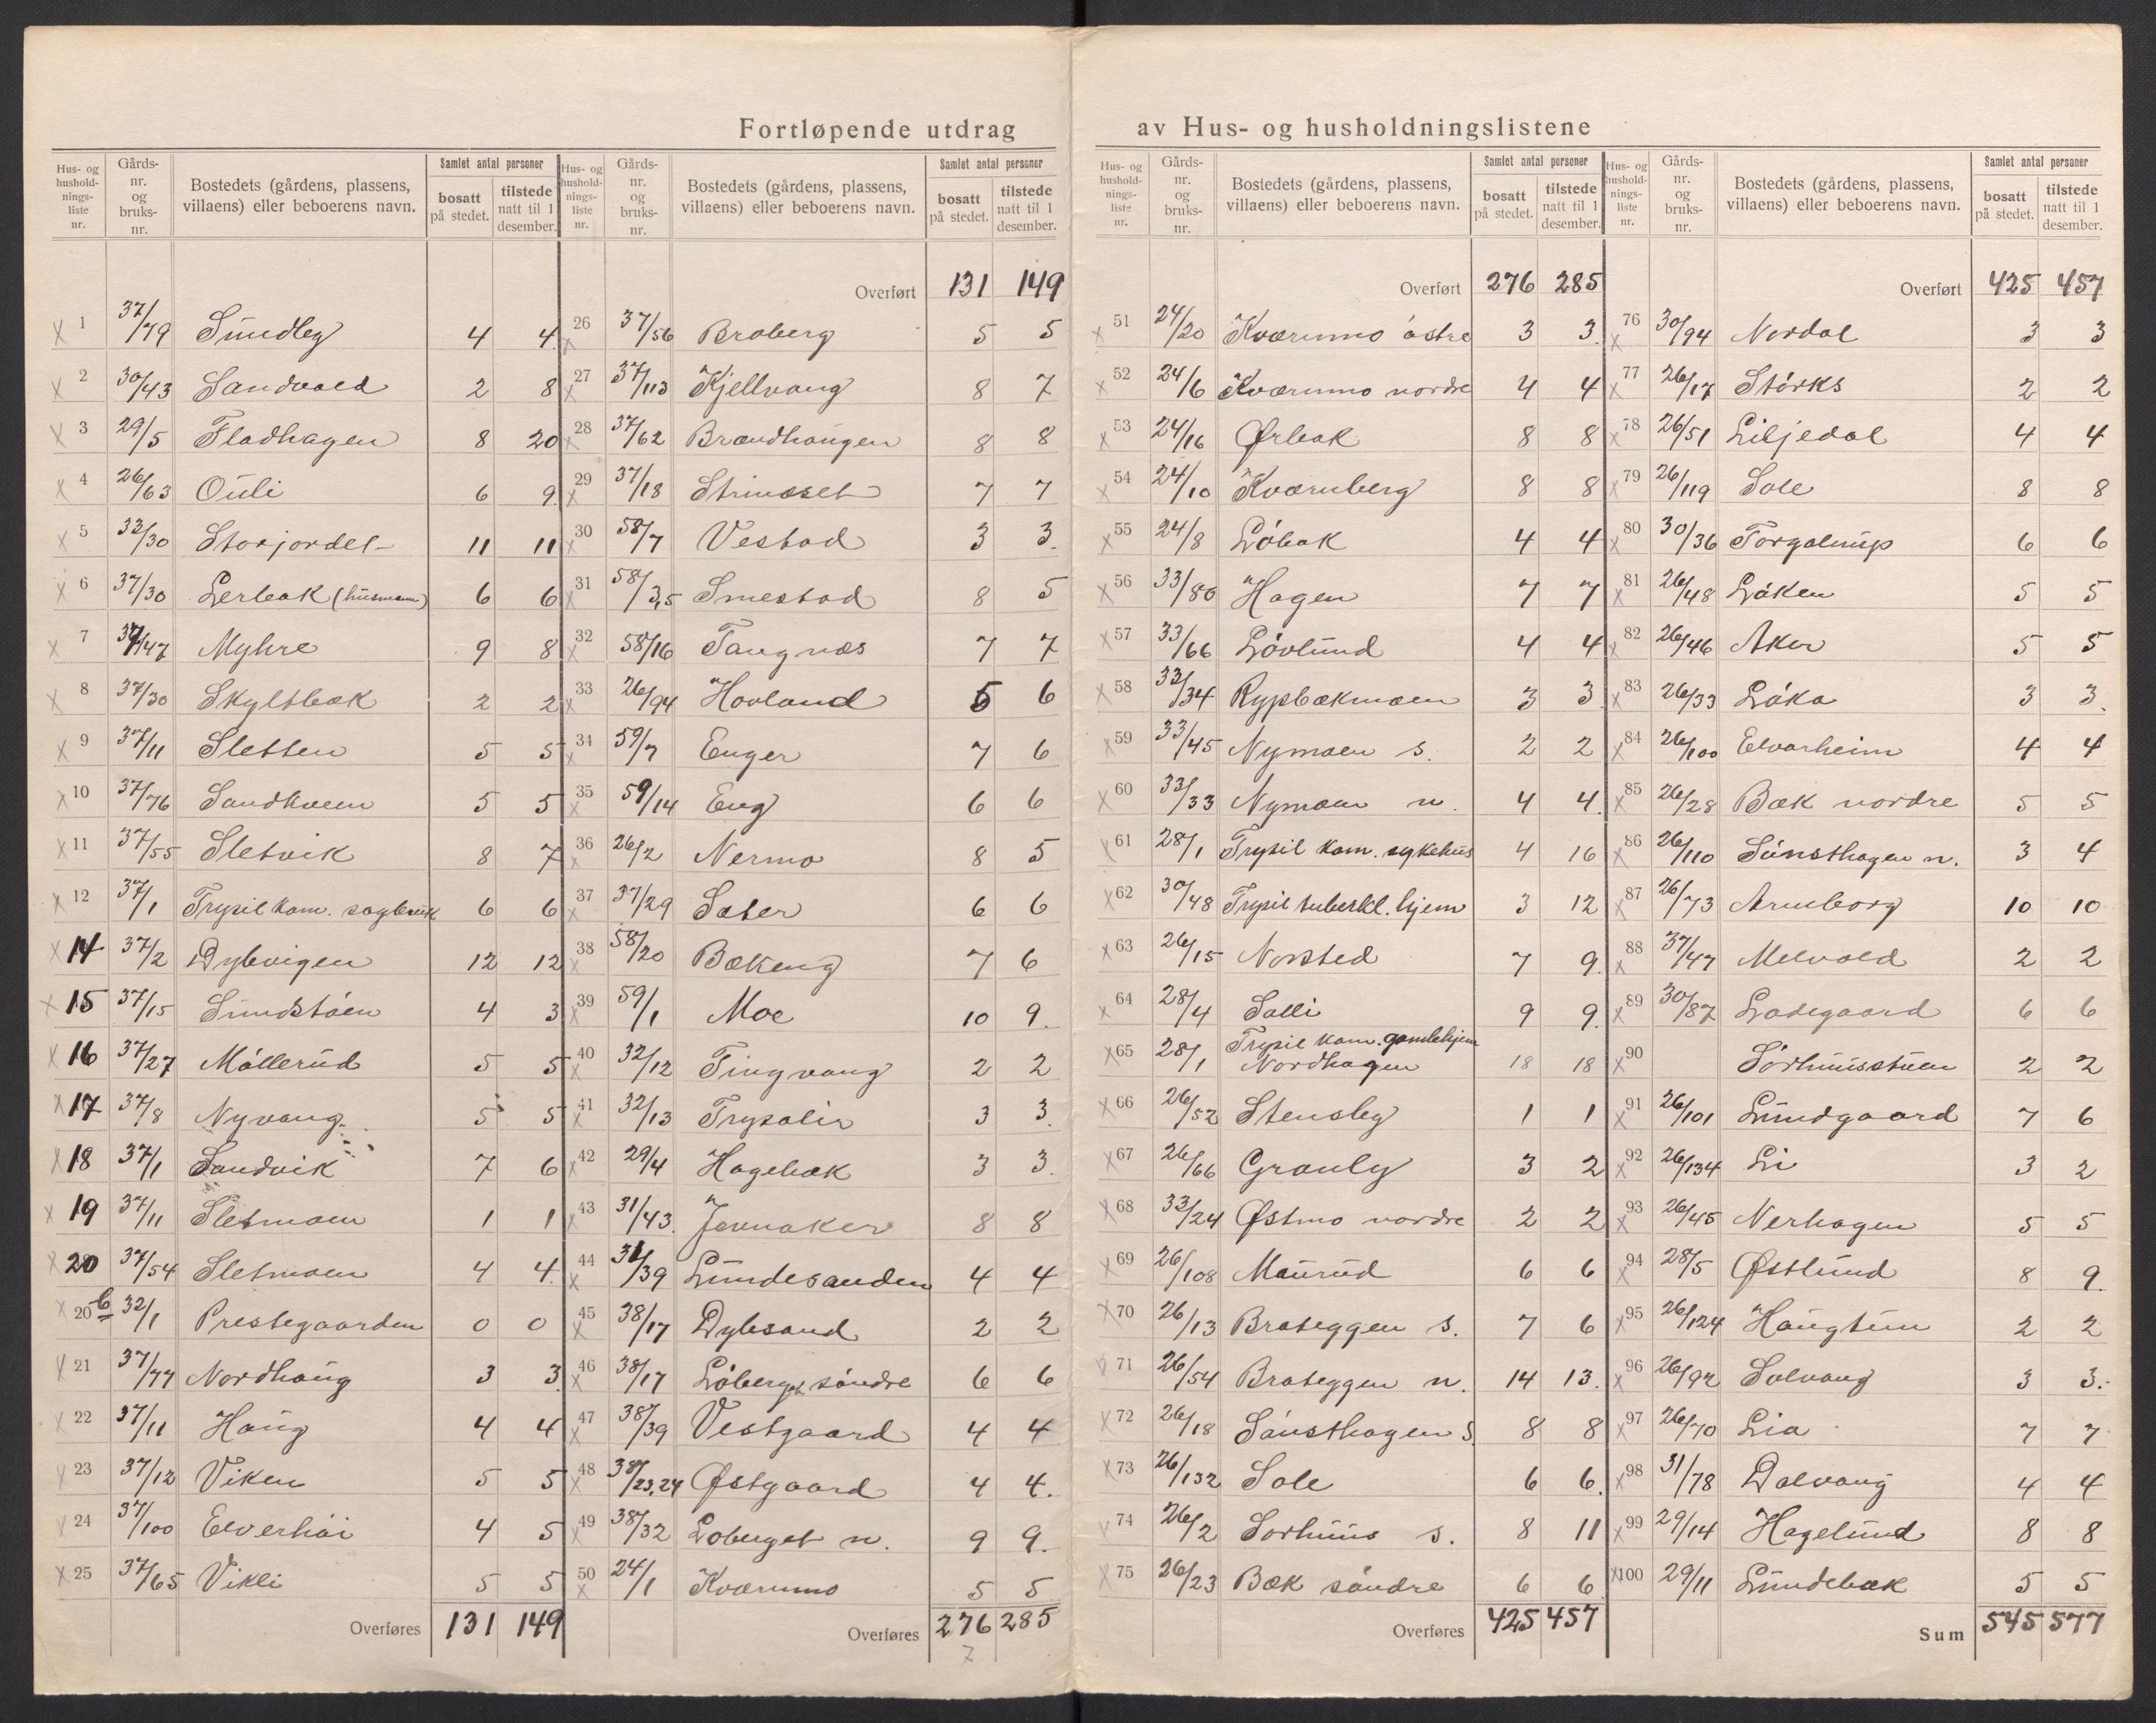 Fortløpende utdrag av Hus- og husholdningslistene
Hus- og husholdnings-liste nr. Gårds-nr. og bruks-nr. Bostedets (gårdens, plassens, villaens) eller beboerens navn. Samlet antal personer bosatt på stedet. tilstede natt til 1 desember.
1 37/79 Sundby 4 4
2 30/43 Sandvold 2 8
3 29/5 Fladhagen 8 20
4 26/63 Ouli 6 9
5 33/30 Storjordet 11 11
6 37/30 Lerbak (husmann) 6 6
7 37/47 Myhre 9 8
8 37/30 Skyltbæk 2 2
9 37/11 Sletten 5 5
10 37/76 Sandkveen 5 5
11 37/55 Sletvik 8 7
12 37/1 Trysil kom. sagbruk 6 6
14 37/2 Dybvigen 12 12
15 37/15 Sundstøen 4 3
16 37/27 Møllerud 5 5
17 37/8 Nyvang 5 5
18 37/1 Sandvik 7 6
19 37/11 Sletmoen 1 1
20 37/54 Sletmoen 4 4
20b 32/1 Prestegaarden 0 0
21 37/77 Nordhaug 3 3
22 37/11 Haug 4 4
23 37/12 Viken 5 5
24 37/100 Elverhøi 4 5
25 37/65 Vikli 5 5
Overføres 131 149
Hus- og husholdnings-liste nr. Gårds-nr. og bruks-nr. Bostedets (gårdens, plassens, villaens) eller beboerens navn. Samlet antal personer bosatt på stedet. tilstede natt til 1 desember.
Overført 131 149
26 37/56 Broberg 5 5
27 37/113 Kjellvang 8 7
28 37/62 Brændhaugen 8 8
29 37/18 Strinæset 7 7
30 58/7 Vestad 3 3
31 58/3,5 Smestad 8 5
32 58/16 Tangnæs 7 7
33 26/94 Hovland 5 6
34 59/7 Enger 7 6
35 59/14 Eng 6 6
36 26/2 Nermo 8 5
37 37/29 Sæter 6 6
38 58/20 Bækeng 7 6
39 59/1 Moe 10 9
40 32/12 Tingvang 2 2
41 32/13 Trysalir 3 3
42 29/4 Hagebæk 3 3
43 31/43 Jevnaker 8 8
44 31/39 Lundesanden 4 4
45 38/17 Dybsand 2 2
46 38/17 Løberget søndre 6 6
47 38/39 Vestgaard 4 4
48 38/23,24 Østgaard 4 4
49 38/32 Løberget n. 9 9
50 24/1 Kværnmo 5 5
Overføres 276 285
7
Hus- og husholdnings-liste nr. Gårds-nr. og bruks-nr. Bostedets (gårdens, plassens, villaens) eller beboerens navn. Samlet antal personer bosatt på stedet. tilstede natt til 1 desember.
Overført 276 285
51 24/20 Kværnmo østre 3 3
52 24/6 Kværnmo nordre 4 4
53 24/16 Ørbak 8 8
54 24/10 Kværnberg 8 8
55 24/8 Løbak 4 4
56 33/80 Hagen 7 7
57 33/66 Løvlund 4 4
58 33/34 Rypbækmoen 3 3
59 33/45 Nymoen s. 2 2
60 33/33 Nymoen n. 4 4
61 28/1 Trysil kom. sykehus 4 16
62 30/48 Trysil tuberkl. hjem 3 12
63 26/15 Norsted 7 9
64 28/4 Solli 9 9
65 28/1 Trysil kom. gamlehjem
Nordhagen 18 18
66 26/52 Stensby 1 1
67 26/66 Granly 3 2
68 33/24 Østmo nordre 2 2
69 26/108 Maurud 6 6
70 26/13 Brateggen s. 7 6
71 26/54 Brateggen n. 14 13
72 26/18 Sønsthagen s. 8 8
73 26/132 Sole 6 6
74 26/2 Sorhuus s. 8 11
75 26/23 Bæk søndre 6 6
Overføres 425 457
Hus- og husholdnings-liste nr. Gårds-nr. og bruks-nr. Bostedets (gårdens, plassens, villaens) eller beboerens navn. Samlet antal personer bosatt på stedet. tilstede natt til 1 desember.
Overført 425 457
76 30/94 Nordal 3 3
77 26/17 Størks 2 2
78 26/51 Liljedal 4 4
79 26/119 Sole 8 8
80 30/36 Torgalmup 6 6
81 26/48 Løken 5 5
82 26/46 Aker 5 5
83 26/33 Løka 3 3
84 26/100 Elvarheim 4 4
85 26/28 Bæk nordre 5 5
86 26/110 Sønsthagen n. 3 4
87 26/73 Arneborg 10 10
88 37/47 Melvold 2 2
89 30/87 Ladegaard 6 6
90 Sørhuusstuen 2 2
91 26/101 Lundgaard 7 6
92 26/134 Li 3 2
93 26/45 Nerhagen 5 5
94 28/5 Østlund 8 9
95 26/124 Haugtun 2 2
96 26/92 Solvang 3 3
97 26/70 Lia 7 7
98 31/78 Dalvang 4 4
99 29/14 Hagelund 8 8
100 29/11 Lundebæk 5 5
Sum 545 577